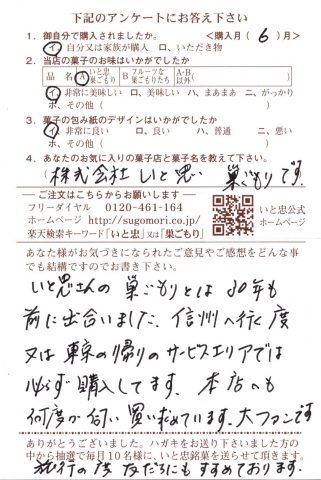 下記のアンケートにお答え下さい
1. 御自分で購入されましたか。 <購入月( 6 )月>
イ 自分又は家族が購入 ロ、いただき物
2. 当店の菓子のお味はいかがでしたか
品 名 A いと忠巣ごもり B フルーツな巣ごもりたち A・B以外( )
イ 非常に美味しい ロ、美味しい ハ、まあまあ ニ、がっかり
ホ、その他( )
3. 菓子の包み紙のデザインはいかがでしたか
イ 非常に良い ロ、良い ハ、普通 ニ、悪い
ホ、その他( )
4. あなたのお気に入りの菓子店と菓子名を教えて下さい。
(株式会社いと忠 巣ごもりです)
―ご注文はこちらからお願いします―
フリーダイヤル 0120-461-164
ホームページ http://sugomori.co.jp/
楽天検索キーワード「いと忠」又は「巣ごもり」
いと忠公式
ホームページ
あなた様がお気づきになられたご意見やご感想をどんな事
でも結構ですのでお書き下さい。
いと忠さんの巣ごもりとは20年も
前に出合いました。信州へ行く度
又は東京の帰りのサービスエリアでは
必ず購入してます。本店へも
何度か伺い買い求めています。大ファンです
ありがとうございました。ハガキをお送り下さいました方の
中から抽選で毎月10名様に、いと忠銘菓を送らせて頂きます。
旅行の度友だちにもすすめております。